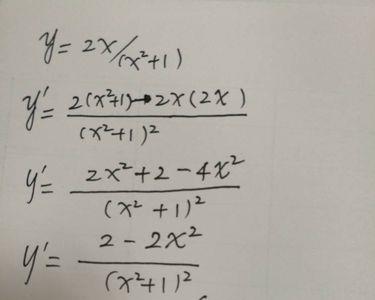 y = 2x/(x²+1)
y' = 2(x²+1)-2x(2x)/(x²+1)²
y' = 2x²+2-4x²/(x²+1)²
y' = 2-2x²/(x²+1)²